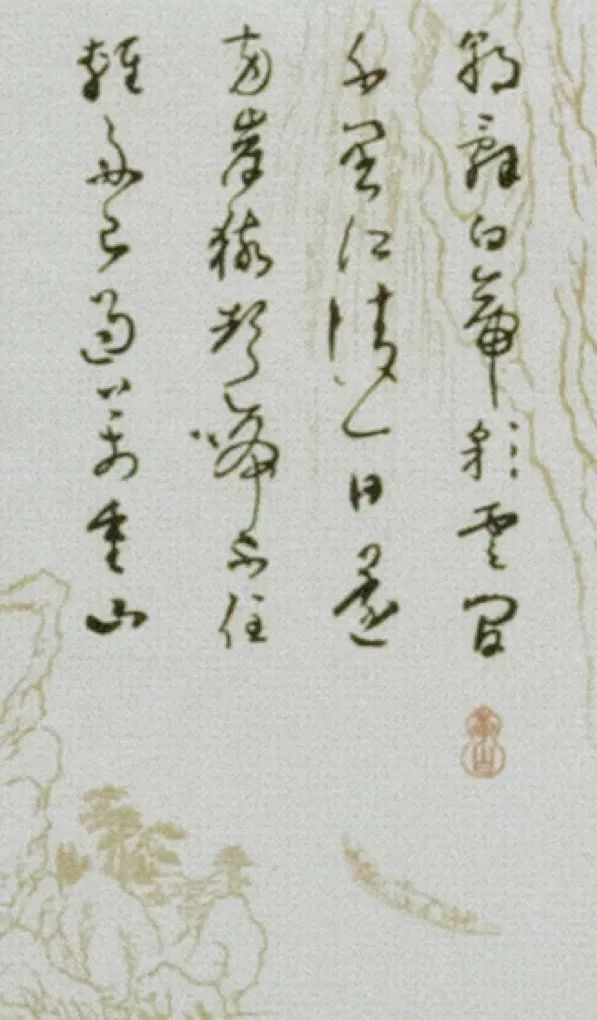 朝辭白帝彩雲間
千里江陵一日還
兩岸猿聲啼不住
輕舟已過萬重山